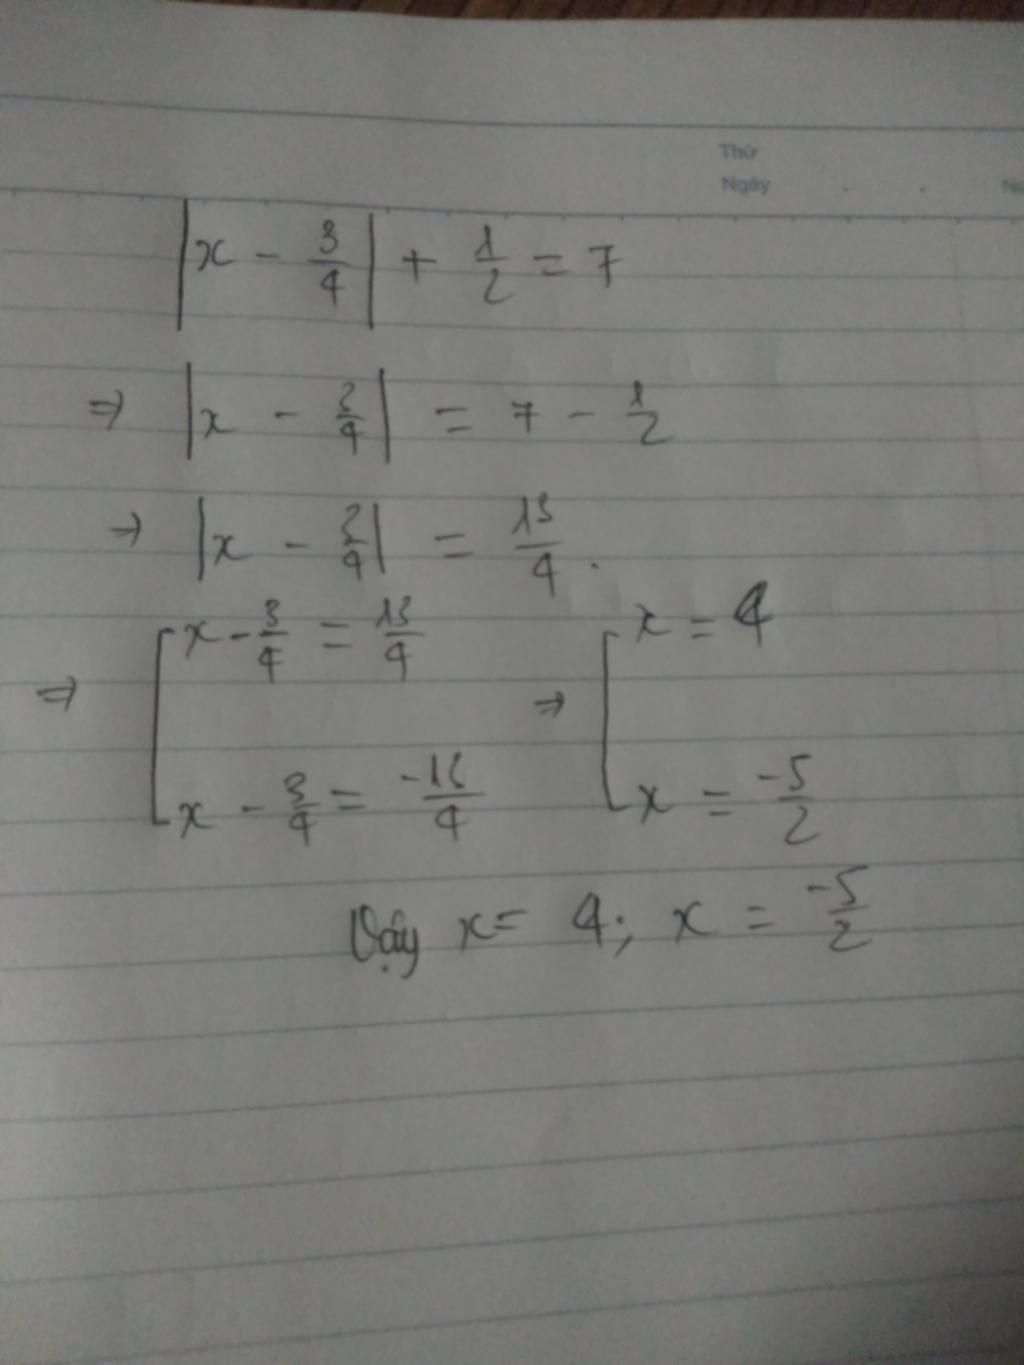 Thứ
Ngày
|x - 3/4| + 1/2 = 7
⇒ |x - 3/4| = 7 - 1/2
⇒ |x - 3/4| = 13/4.
⇒ [ x - 3/4 = 13/4 ⇒ [ x = 4
x - 3/4 = -13/4 x = -5/2
Vậy x = 4; x = -5/2